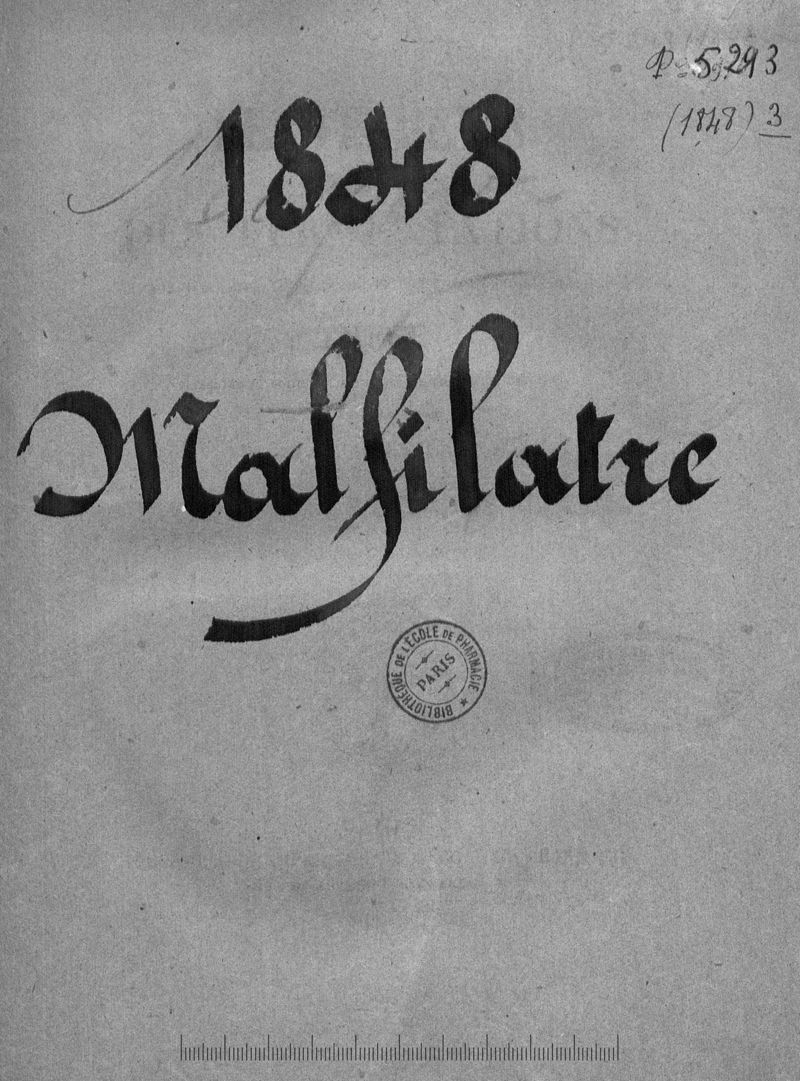 P 5.293
(1848) 3
1848
Malfilatre
BIBLIOTHÈQUE DE L'ÉCOLE DE PHARMACIE
PARIS